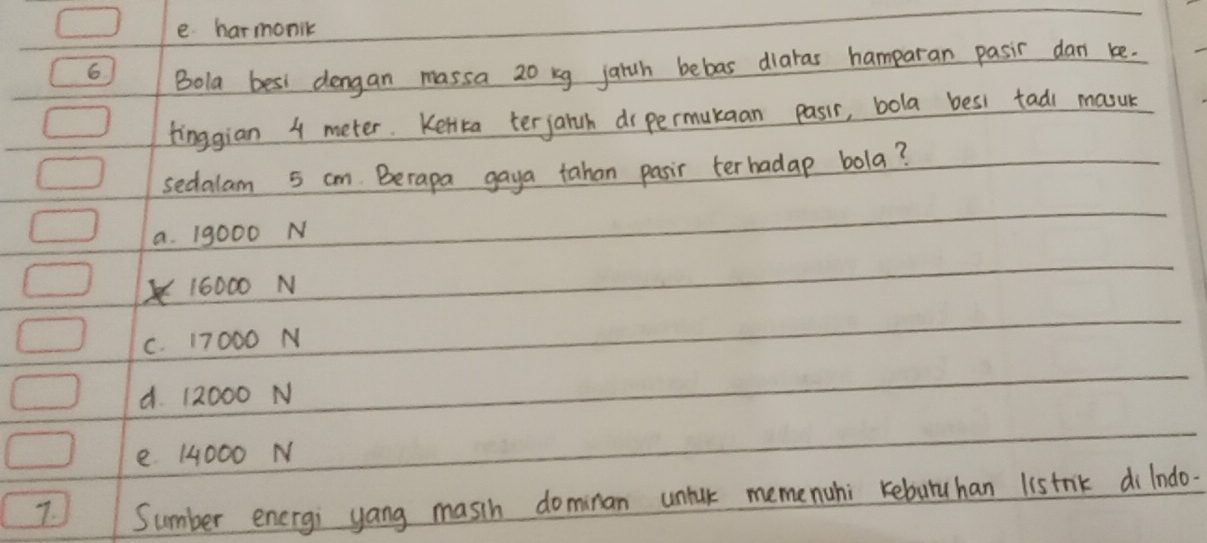 e. harmonik
6 Bola besi dengan massa 20 kg jatuh bebas diatas hamparan pasir dari ke-
tinggian 4 meter. Ketika terjatuh di permukaan pasir, bola besi tadi masuk
sedalam 5 cm. Berapa gaya tahan pasir terhadap bola?
a. 19000 N
16000 N
c. 17000 N
d. 12000 N
e. 14000 N
7. Sumber energi yang masih dominan untuk memenuhi kebutuhan listrik di Indo-